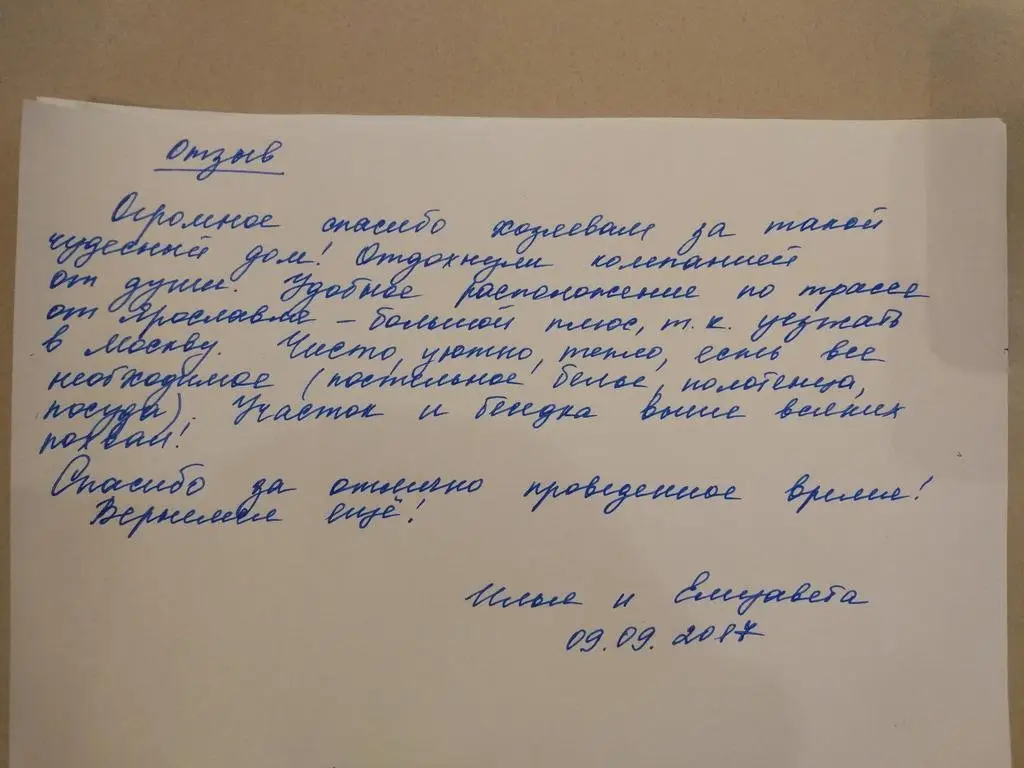 Отзыв
Огромное спасибо хозяевам за такой
чудесный дом! Отдохнули компанией
от души. Удобное расположение по трассе
от Ярославля – большой плюс, т.к. уезжать
в Москву. Чисто, уютно, тепло, есть все
необходимое (постельное белье, полотенца,
посуда). Участок и беседка выше всяких
похвал!
Спасибо за отлично проведенное время!
Вернемся ещё!
Илья и Елизавета
09.09.2017